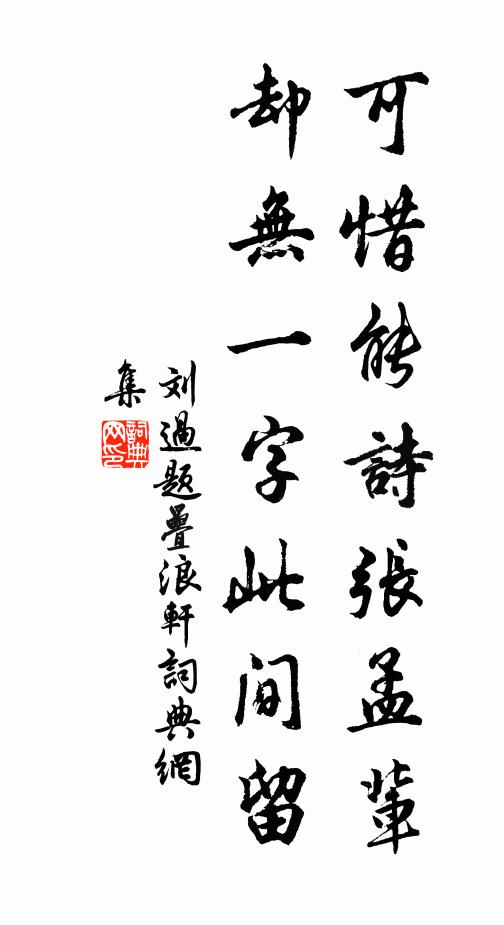 可惜能詩張孟輩
却無一字此间留
刘過题疊浪軒詞典網
集
詞典网印